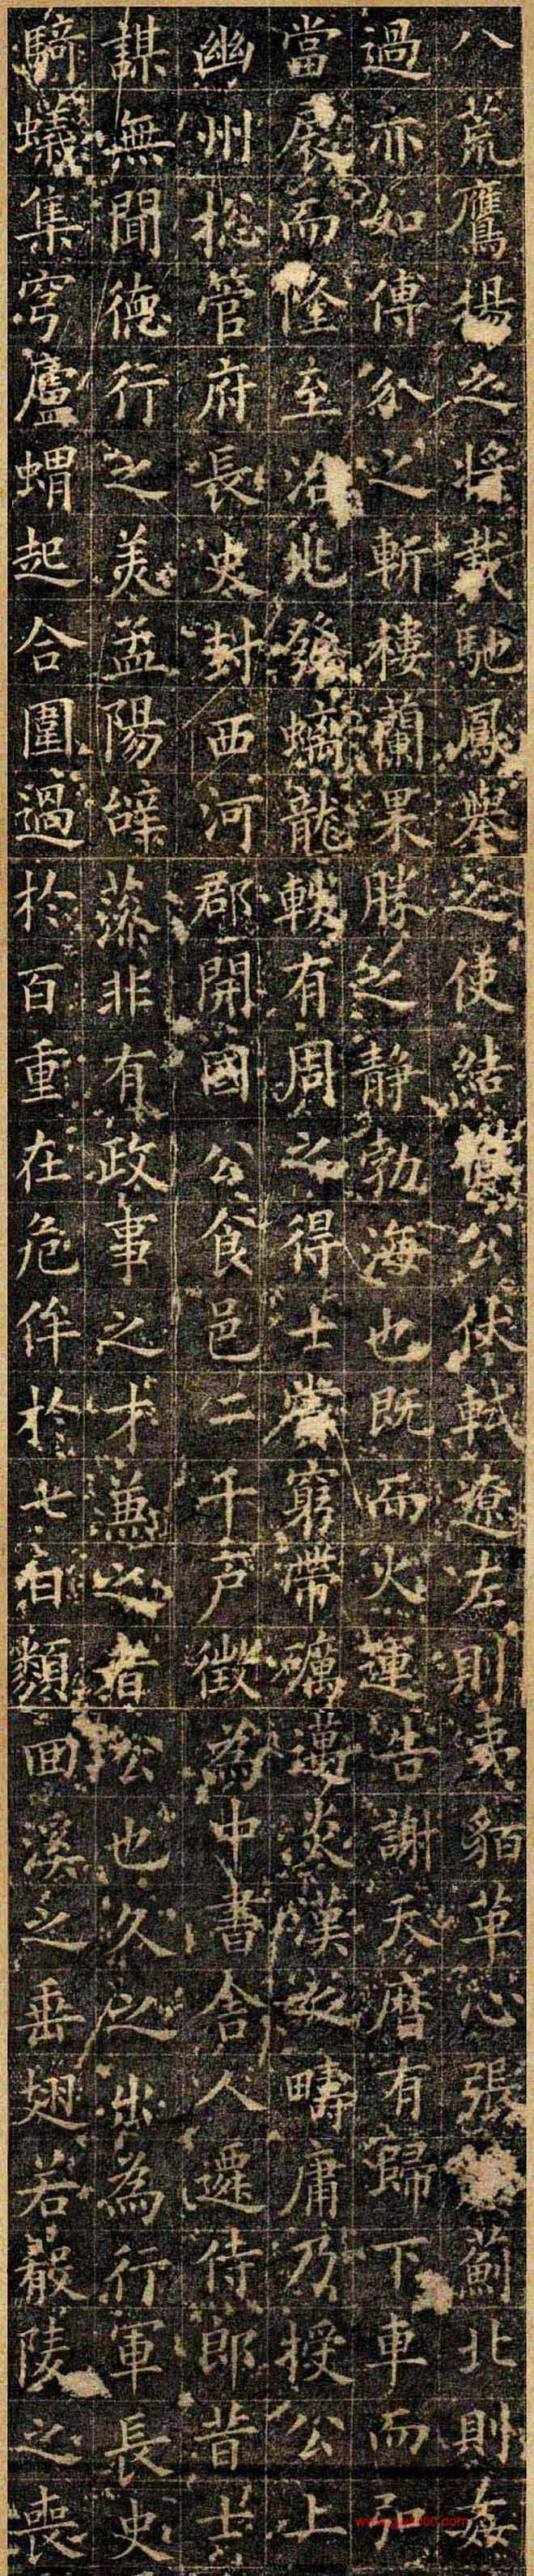 八荒鷹揚之將載馳鳳舉之使結轍公伏軾遼左則夷貊革心張䇿薊北則姦
過亦如傅介之斬樓蘭果勝之靜勃海也既而火運告謝天曆有歸下車而
當扆而隆至治北發螭龍軼有周之得士當窮帶礪邁炎漢以疇庸乃授公上
幽州捴管府長史封西河郡開國公食邑二千戶徵為中書舍人遷侍郎昔士
謀無聞德行之美孟陽辭藻非有政事之才兼之者公也久之出為行軍長史
騎蟻集穹廬蝟起合圍過於百重在危侔於七日類回溪之垂翅若嚴陵之喪
www.gt4000.com